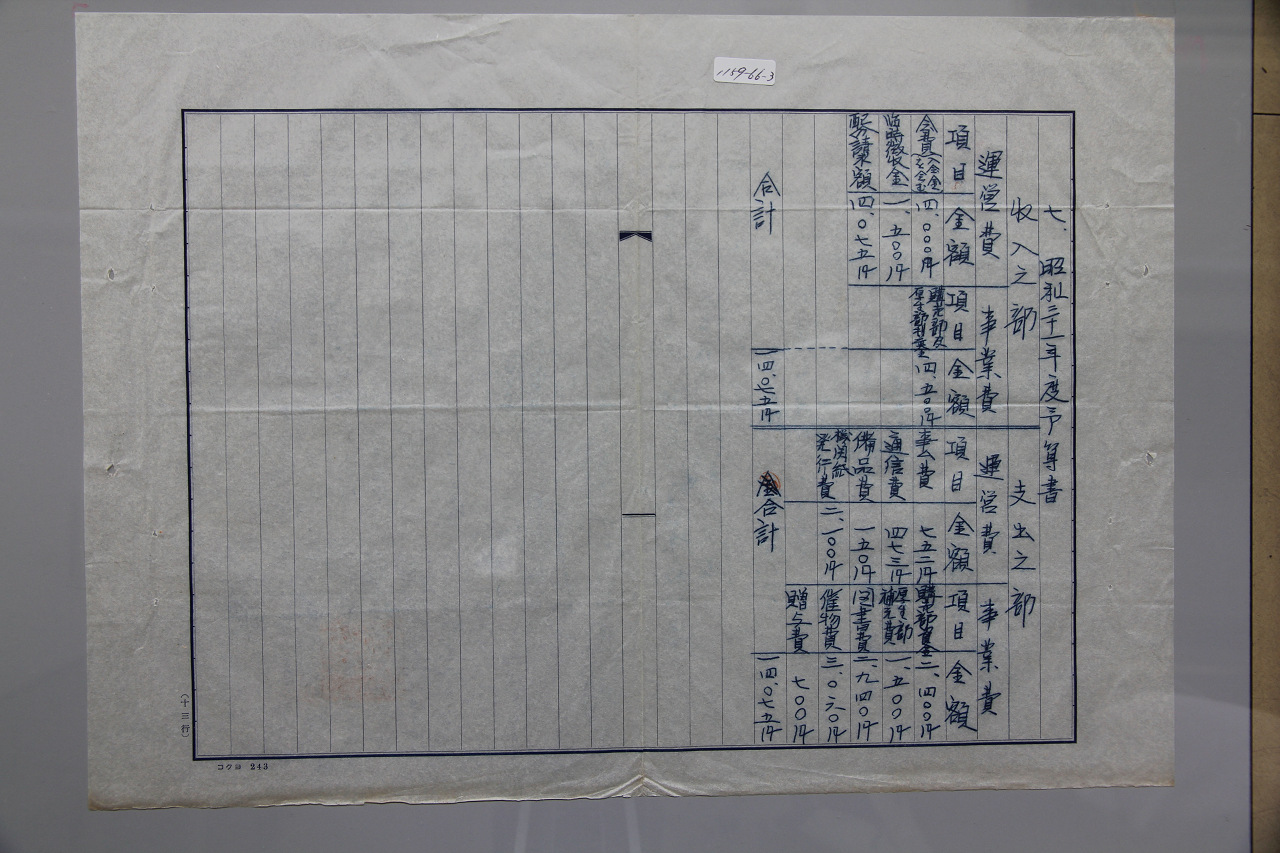 1159-66-3
七、昭和三十一年度予算書
収入之部
支出之部
運営費
事業費
運営費
事業費
項目
金額
項目
金額
項目
金額
項目
金額
会費
四、〇〇〇円
購売部及
厚生部利益金
四、五〇〇円
事ム費
七五二円
購売部資金
二、四〇〇円
臨時徴収金
一、五〇〇円
通信費
四七三円
厚生部
補充費
一、五〇〇円
配分請求額
四、〇七五円
備品費
一五〇円
図書費
二、九四〇円
機関紙
発行費
二、一〇〇円
催物費
三、〇六〇円
贈与費
七〇〇円
合計
一四、〇七五円
合計
一四、〇七五円
(十三行)
コクヨ 243